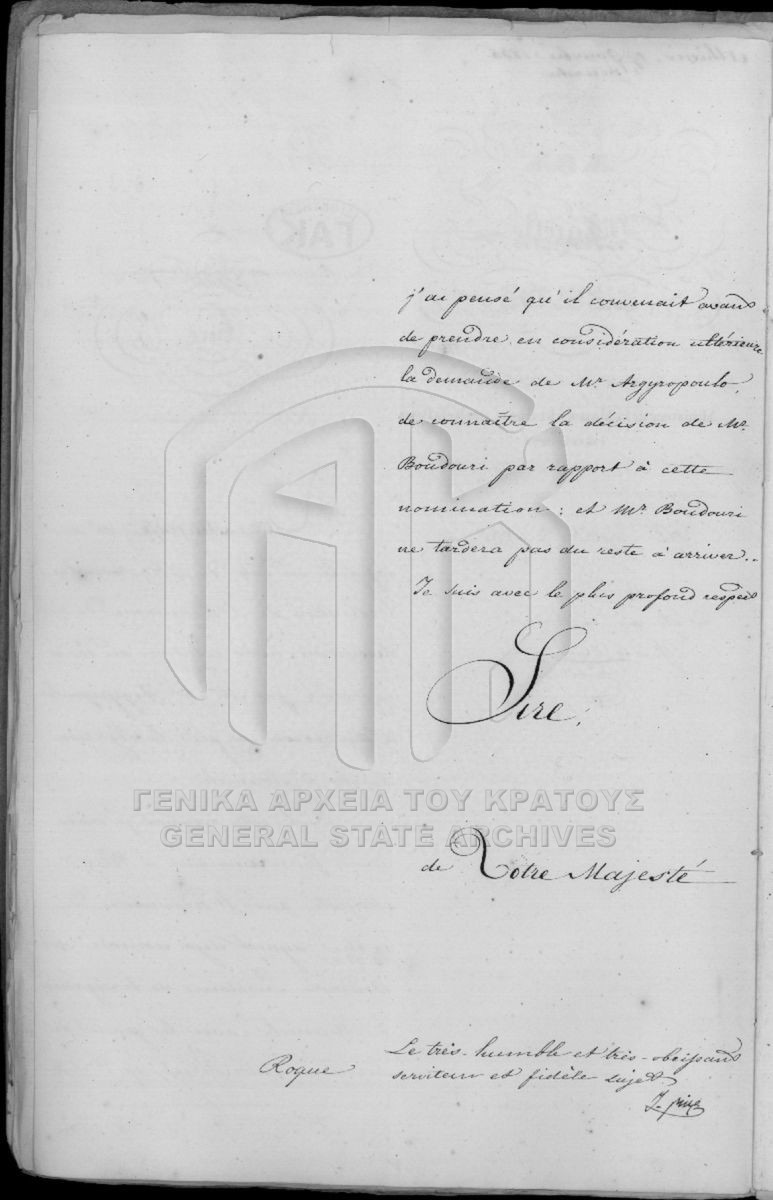 j'ai pensé qu'il convenait avant
de prendre en considération ultérieure
la demande de Mr. Argyropoulo,
de connaître la décision de Mr.
Boudouri par rapport à cette
nomination; et Mr. Boudouri
ne tardera pas du reste à arriver..
Je suis avec le plus profond respect
Sire,
ΓΕΝΙΚΑ ΑΡΧΕΙΑ ΤΟΥ ΚΡΑΤΟΥΣ
GENERAL STATE ARCHIVES
de Votre Majesté
Le très-humble et très-obeissant
serviteur et fidèle sujet
Roque